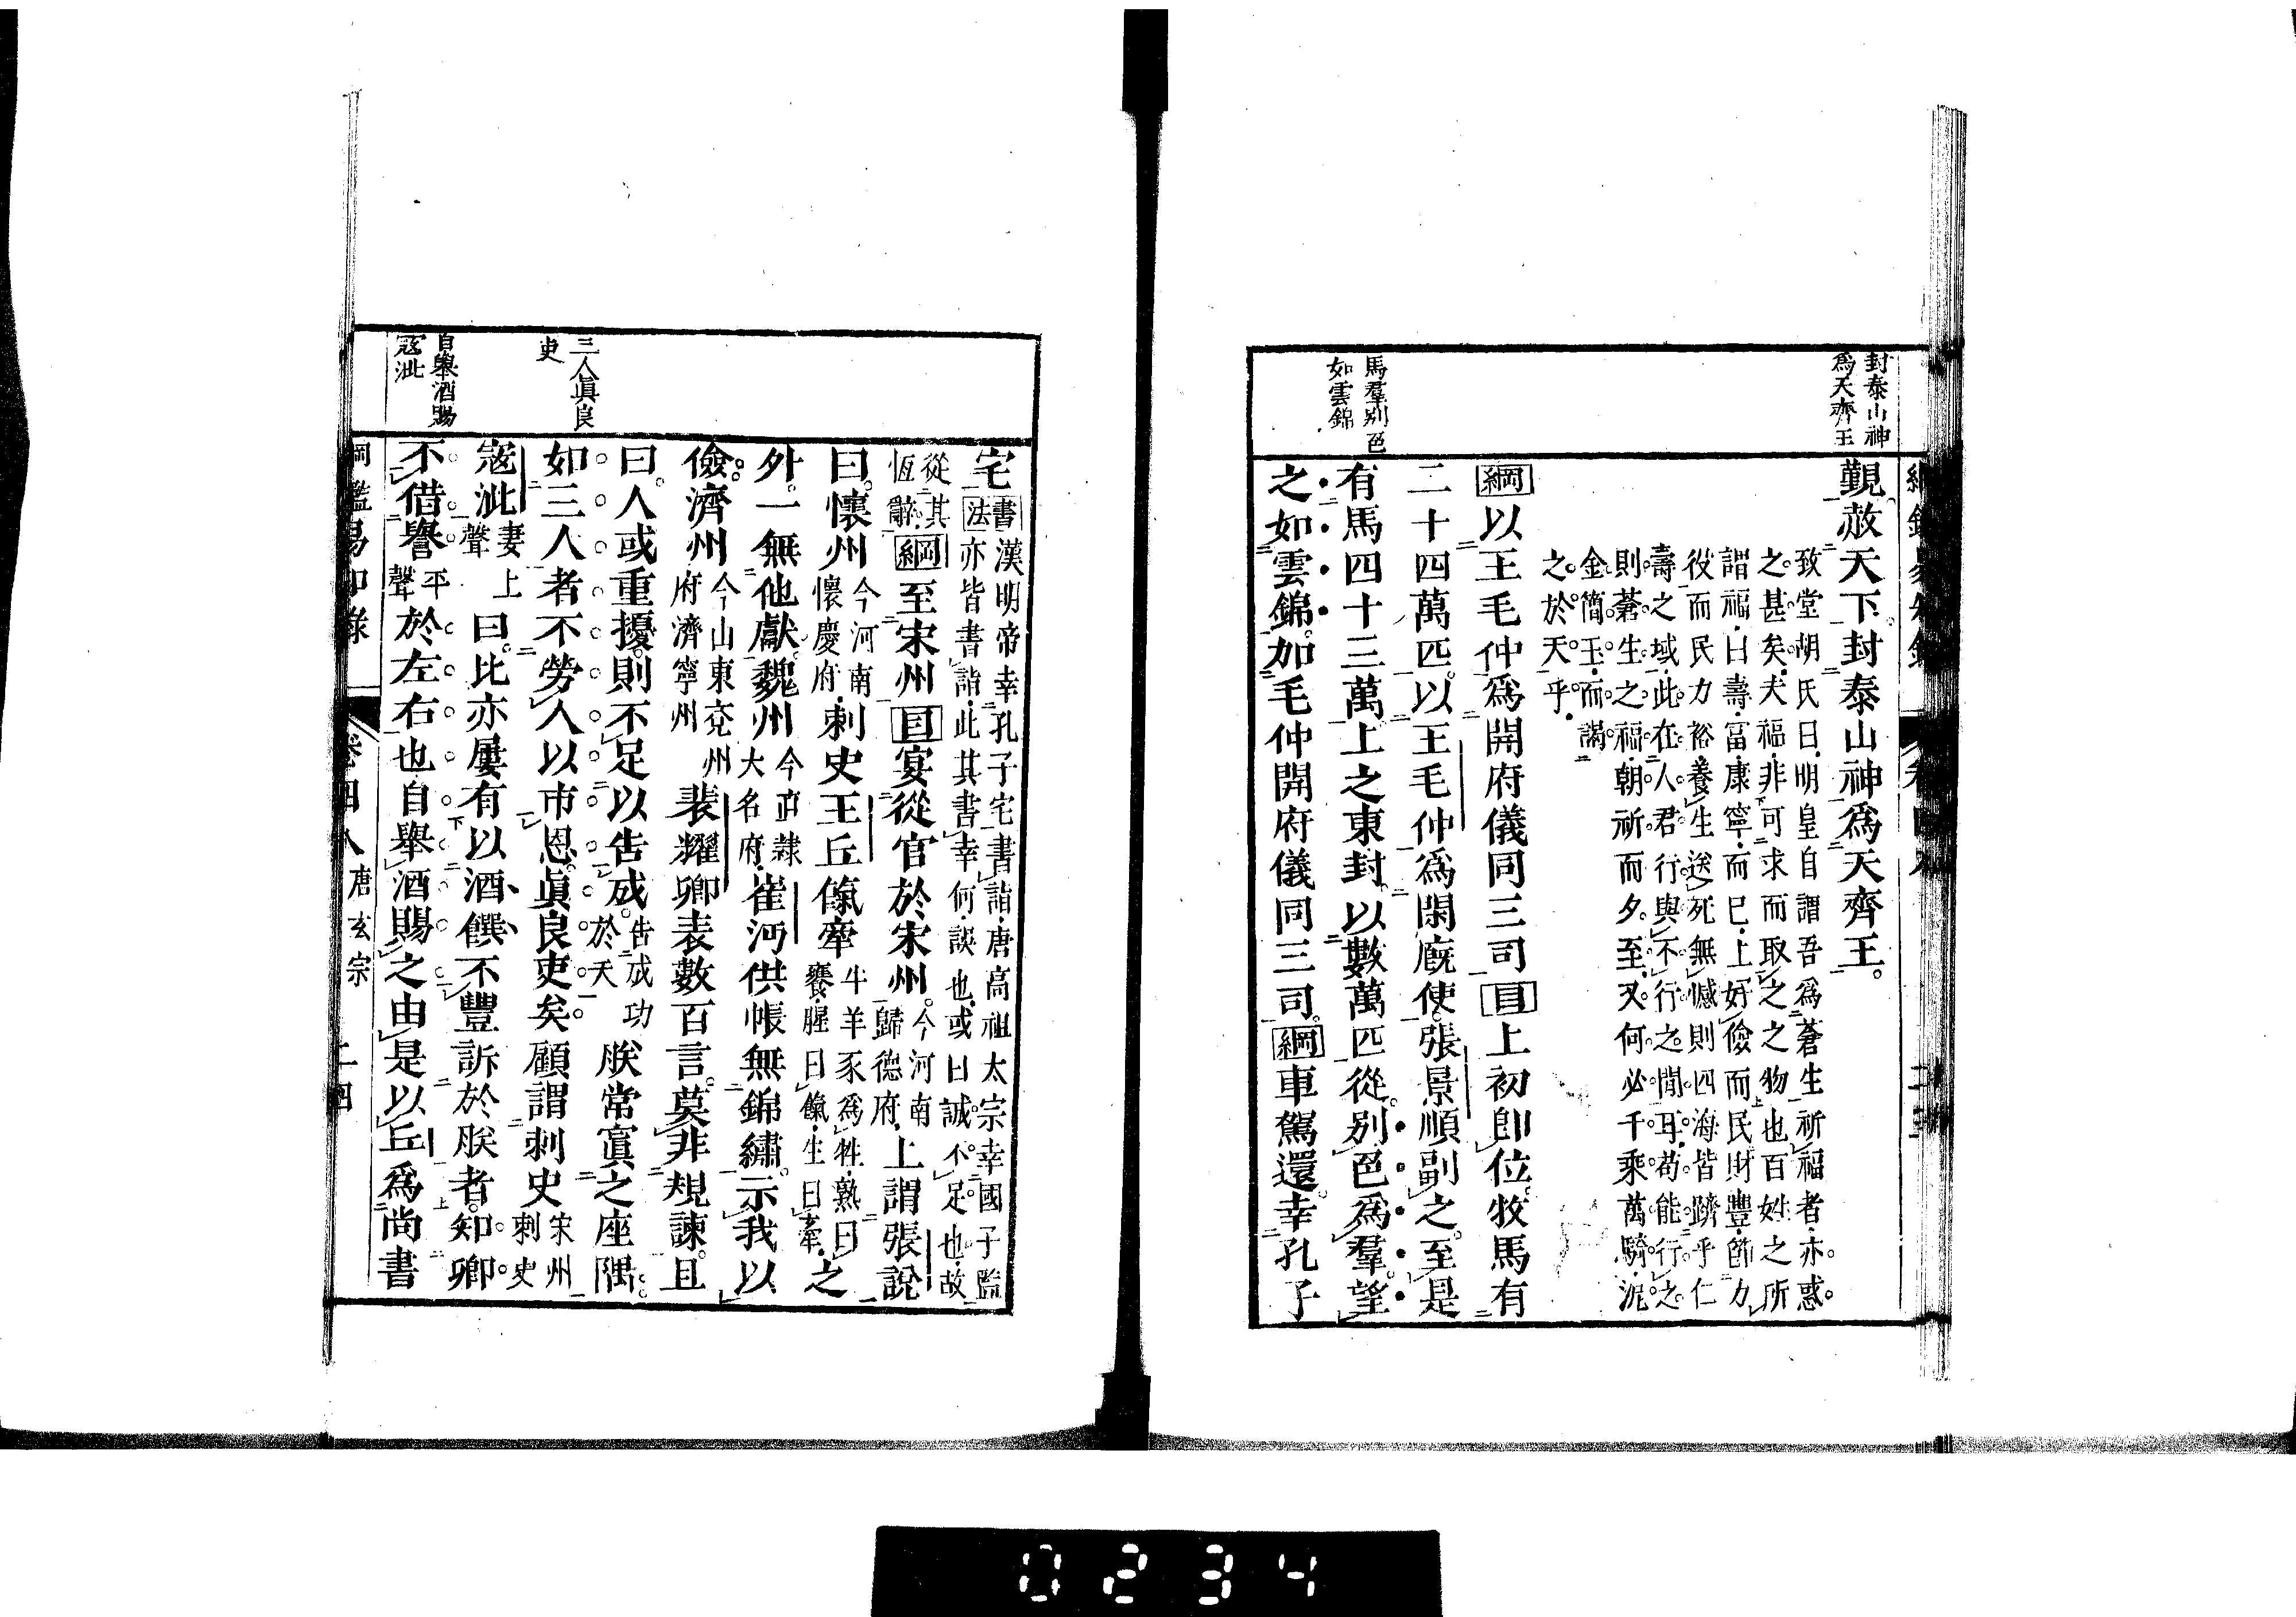 封泰山神
爲天齊王
馬羣別色
如雲錦
覲赦天下封泰山神爲天齊王。
致堂胡氏曰明皇自謂吾爲蒼生祈福者亦惑
之甚矣夫福非可求而取之之物也百姓之所
謂福曰壽富康寧而已上好儉而民財豐節力
役而民力裕養生送死無憾則四海皆躋乎仁
壽之域此在人君行與不行之閒耳苟能行之
則蒼生之福朝祈而夕至又何必千乘萬騎泥
金簡玉而謁
之於天乎
綱以王毛仲爲開府儀同三司目上初卽位牧馬有
二十四萬匹以王毛仲爲閑廐使張景順副之至是
有馬四十三萬上之東封以數萬匹從別色爲羣望
之如雲錦加毛仲開府儀同三司綱車駕還幸孔子
三人眞良
吏
自舉酒賜
寇泚
宅書法漢明帝幸孔子宅書詣唐高祖太宗幸國子監
亦皆書詣此其書幸何談也或曰誠不足也故
從其
恆辭綱至宋州目宴從官於宋州今河南
歸德府上謂張說
曰懷州今河南
懷慶府刺史王丘餼牽牛羊豕爲牲熟曰
饔腥曰餼生曰牽之
外一無他獻魏州今直隸
大名府崔沔供帳無錦繡示我以
儉濟州今山東兗州
府濟寧州裴耀卿表數百言莫非規諫且
曰人或重擾則不足以告成告成功
於天朕常寘之座隅
如三人者不勞人以市恩眞良吏矣顧謂刺史宋州
刺史
寇泚妻上
聲曰比亦屢有以酒饌不豐訴於朕者知卿
不借譽平
聲於左右也自舉酒賜之由是以丘爲尚書
綱鑑易知錄 卷四八 唐玄宗 二四